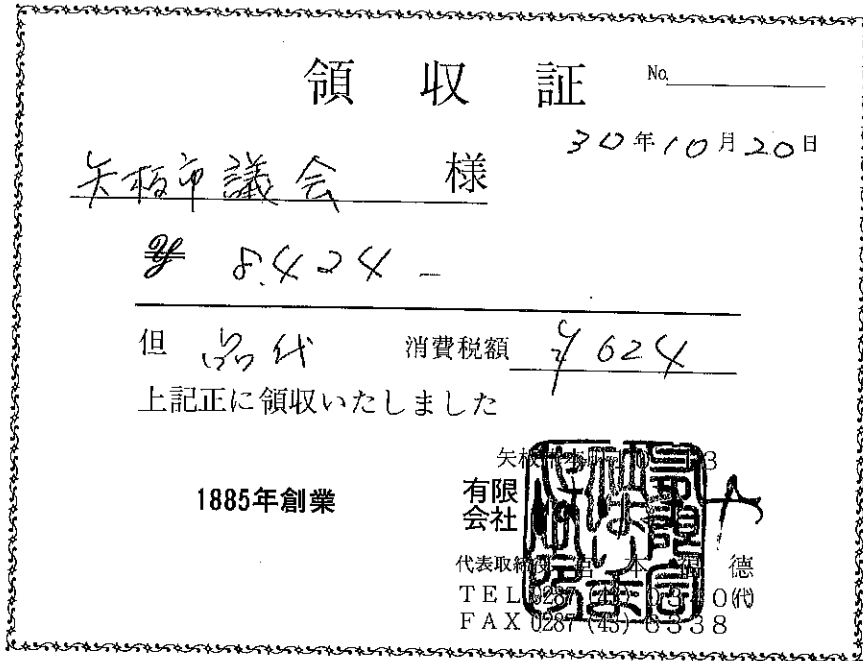 領収証 No.
30年10月20日
矢板市議会 様
¥ 8.424 -
但 品代 消費税額 ¥624
上記正に領収いたしました
1885年創業
有限会社
代表取締役 本 徳
TEL 0287 (代)
FAX 0287 (43) 8338